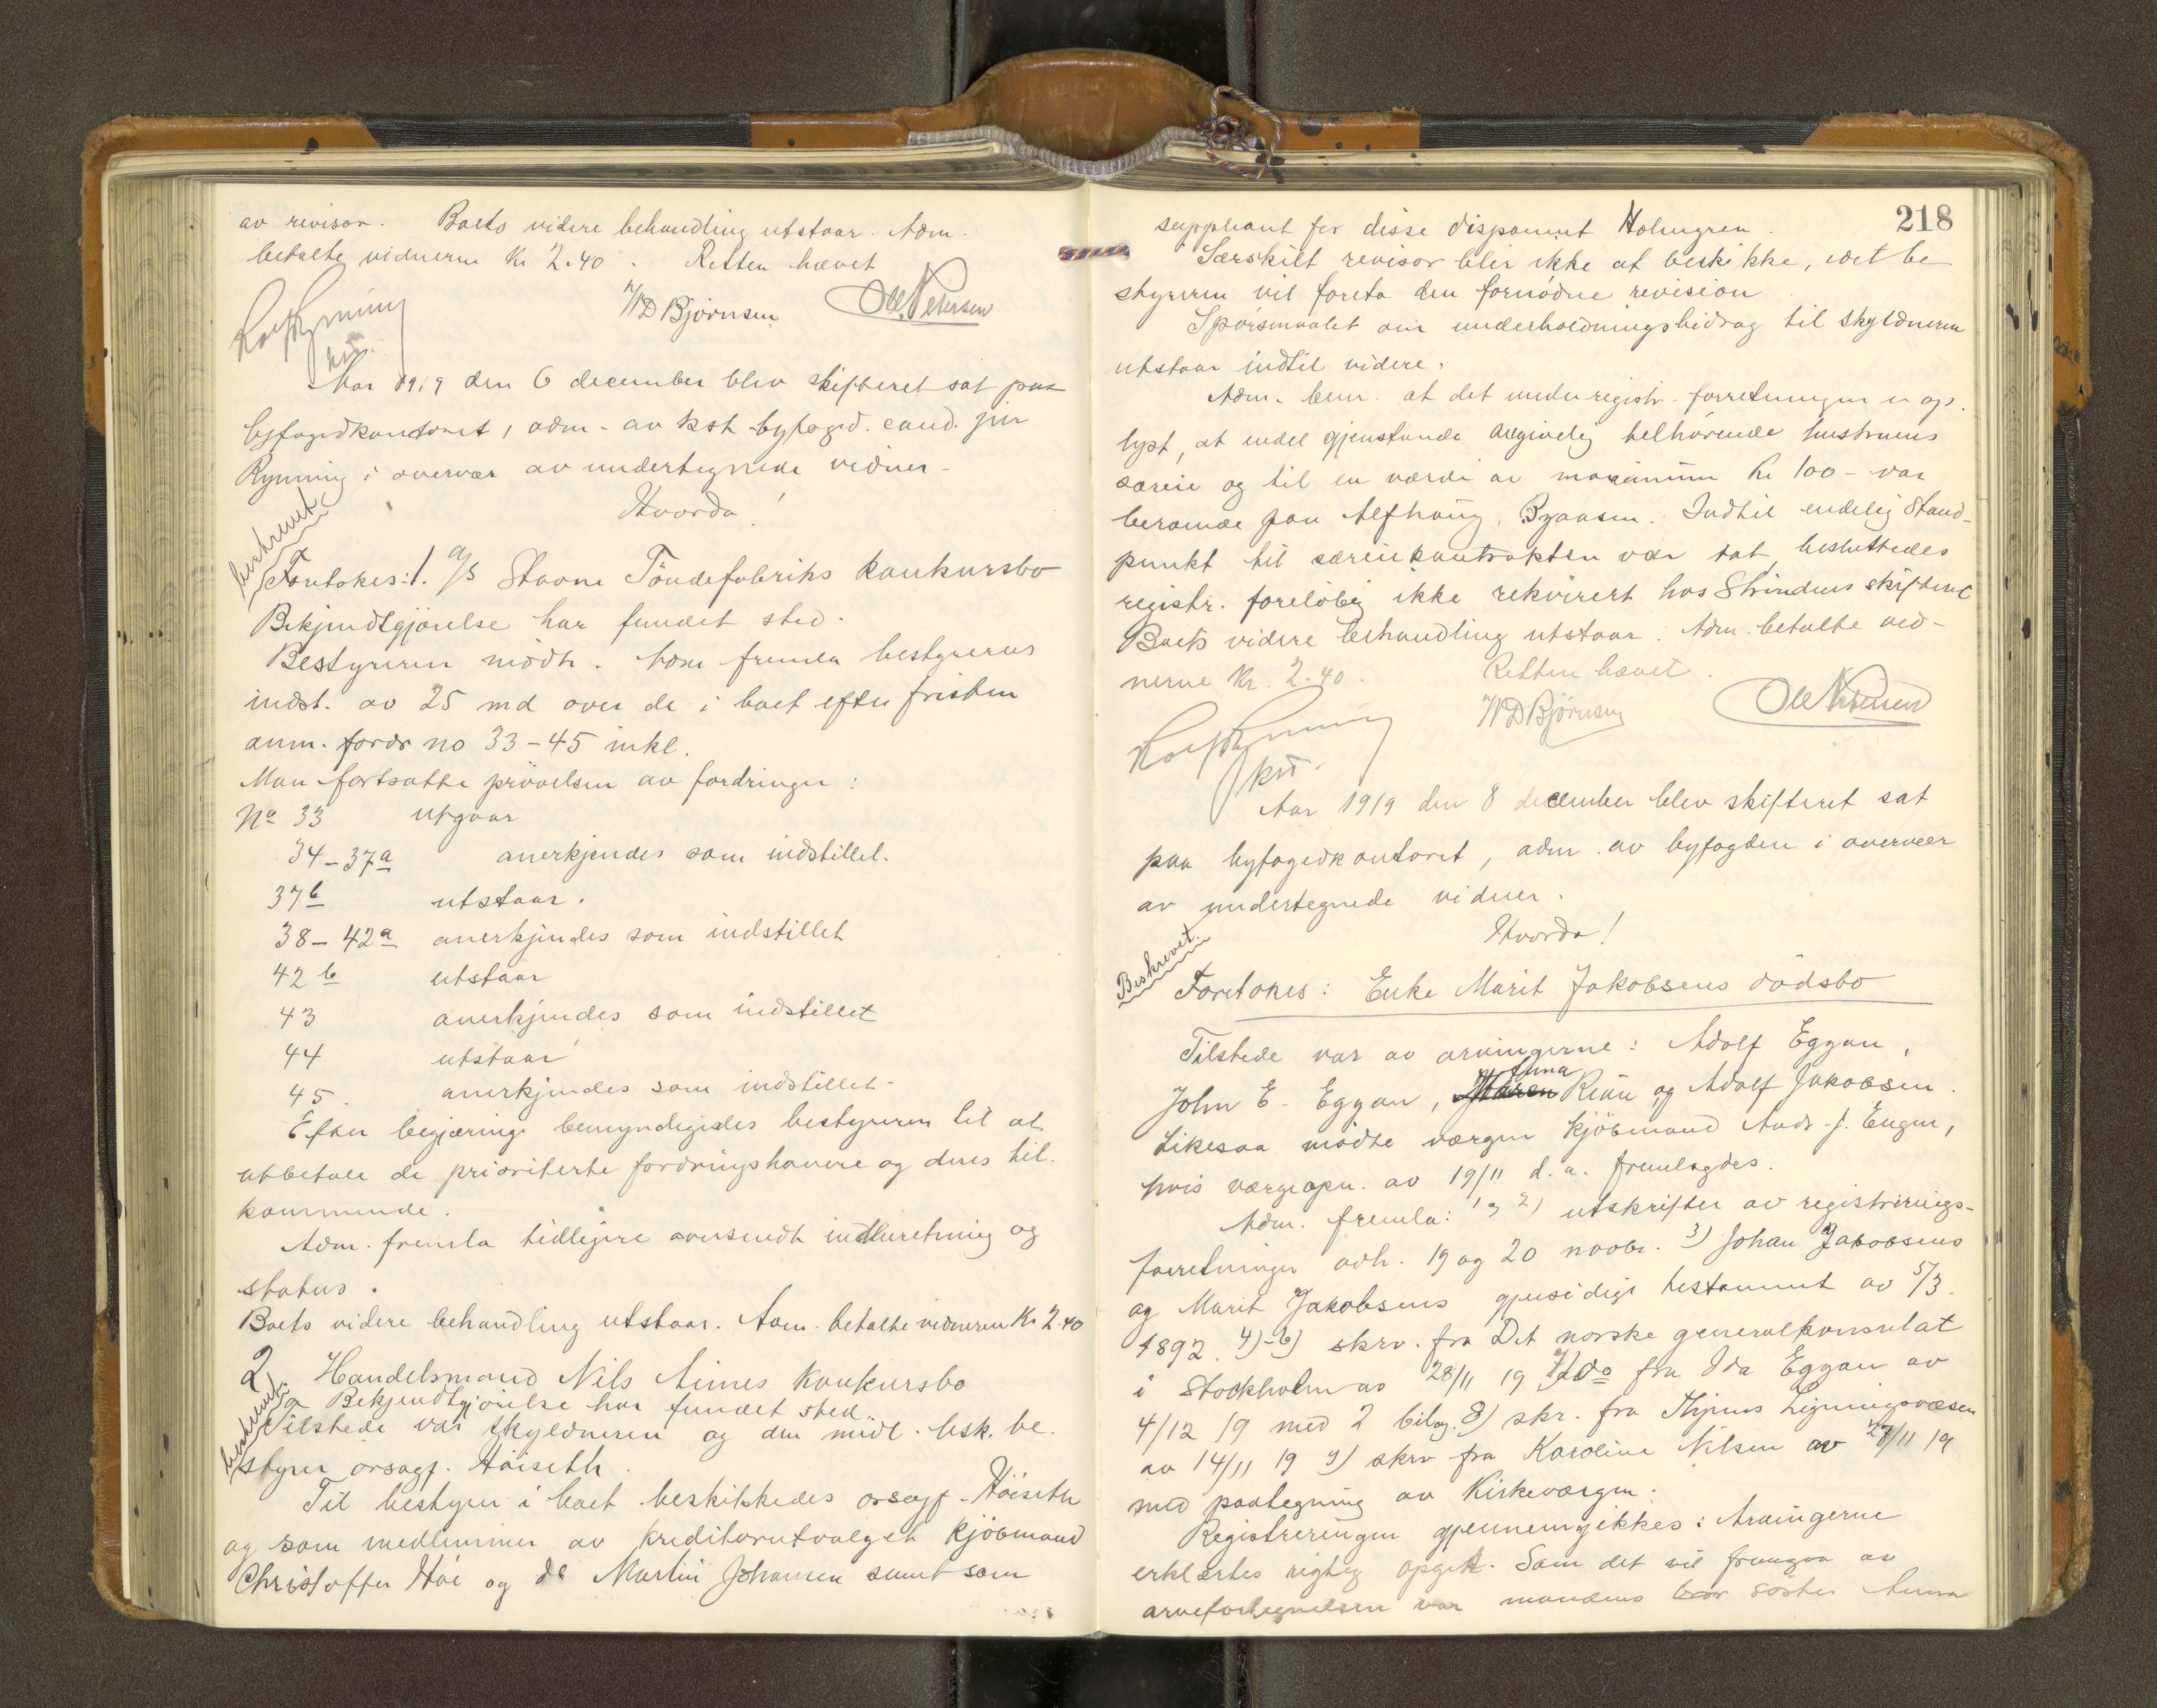 av revisor. Boets videre behandling utstaar. Adm.
betalte vidnerne Kr 2.40. Retten hævet
Rolf Rynning
kst.
W D Bjørnsen
Ole Petersen
Aar 1919 den 6 december blev skifteret sat paa
byfogdkontoret, adm. av kst. byfogd. cand. jur
Rynning i overvær av undertegnede vidner.
Hvorda!
beskrevet
Foretokes: 1. A/S Stavne Töndefabriks konkursbo
Bekjendtgjörelse har fundet sted.
Bestyreren mödte. Adm fremla bestyrerens
indst. av 25 md over de i boet efter fristen
anm. fordr no 33-45 inkl.
Man fortsatte prövelsen av fordringer:
No 33 utgaar
34-37a anerkjendes som indstillet.
37b utstaar.
38-42a anerkjendes som indstillet
42b utstaar
43 anerkjendes som indstillet
44 utstaar
45. anerkjendes som indstillet.
Efter begjæring bemyndigedes bestyreren til at
utbetale de prioriterte fordringshavere og deres til-
kommende.
Adm. fremla tidligere oversendt indberetning og
status.
Boets videre behandling utstaar. Adm. betalte vidnerne Kr 2.40
2 Handelsmand Nils Aunes Konkursbo
Bekjendtgjörelse har fundet sted.
beskrevet
Tilstede var skyldneren og den midl. besk. be-
styrer orsagf. Höiseth.
Til bestyrer i boet beskikkedes orsagf. Höiseth
og som medlemmer av kreditorutvalget kjöbmand
Christoffer Höe og do Martin Johansen samt som
218
suppleant for disse disponent Holmgren.
Særskilt revisor blir ikke at beskikke, idet be
styreren vil foreta den fornödne revision
Spörsmaalet om underholdningsbidrag til skyldneren
utstaar indtil videre.
Adm. bem. at det under registr. forretningen er op-
lyst, at endel gjenstande angivelig tilhörende hustruens
særeie og til en værdi av maximum Kr 100- var
beroende paa Alfhaug, Byaasen. Indtil endelig stand-
punkt til særeiekontrakten var tat, besluttedes
registr. forelöbig ikke rekvirert hos Strindens skifteret
Boets videre behandling utstaar. Adm. betalte vid-
nerne Kr. 2.40. Retten hævet.
Rolf Rynning
kst.
W D Bjørnsen
Ole Petersen
Aar 1919 den 8 december blev skifteret sat
paa byfogedkontoret, adm. av byfogden i overvær
av undertegnede vidner.
Hvorda!
Beskrevet.
Foretokes: Enke Marit Jakobsens dödsbo
Tilstede var av arvingerne: Adolf Eggan,
John E. Eggan, Anna Rian, og Adolf Jakobsen.
Likesaa mödte værgen kjöbmand Andr. J. Engen,
hvis værgeopn. av 19/11 d.a. fremlagdes.
Adm. fremla: 1 og 2) utskrifter av registrerings-
forretninger avh. 19 og 20 novbr. 3) Johan Jakobsens
og Marit Jakobsens gjensidige testament av 5/3
1892. 4)-6) skrv. fra Det norske generalkonsulat
i Stockholm av 28/11 19 7) do fra Ida Eggan av
4/12 19 med 2 bilag. 8) skr. fra Thjems Ligningsvæsen
av 14/11 19 9) skrv fra Karoline Nilsen av 27/11 19
med paategning av Kirkeværgen.
Registreringen gjennemgikkes: Arvingerne
erklærtes rigtig opgit. Som det vil fremgaa av
arvefortegnelsen var mandens söster Anna